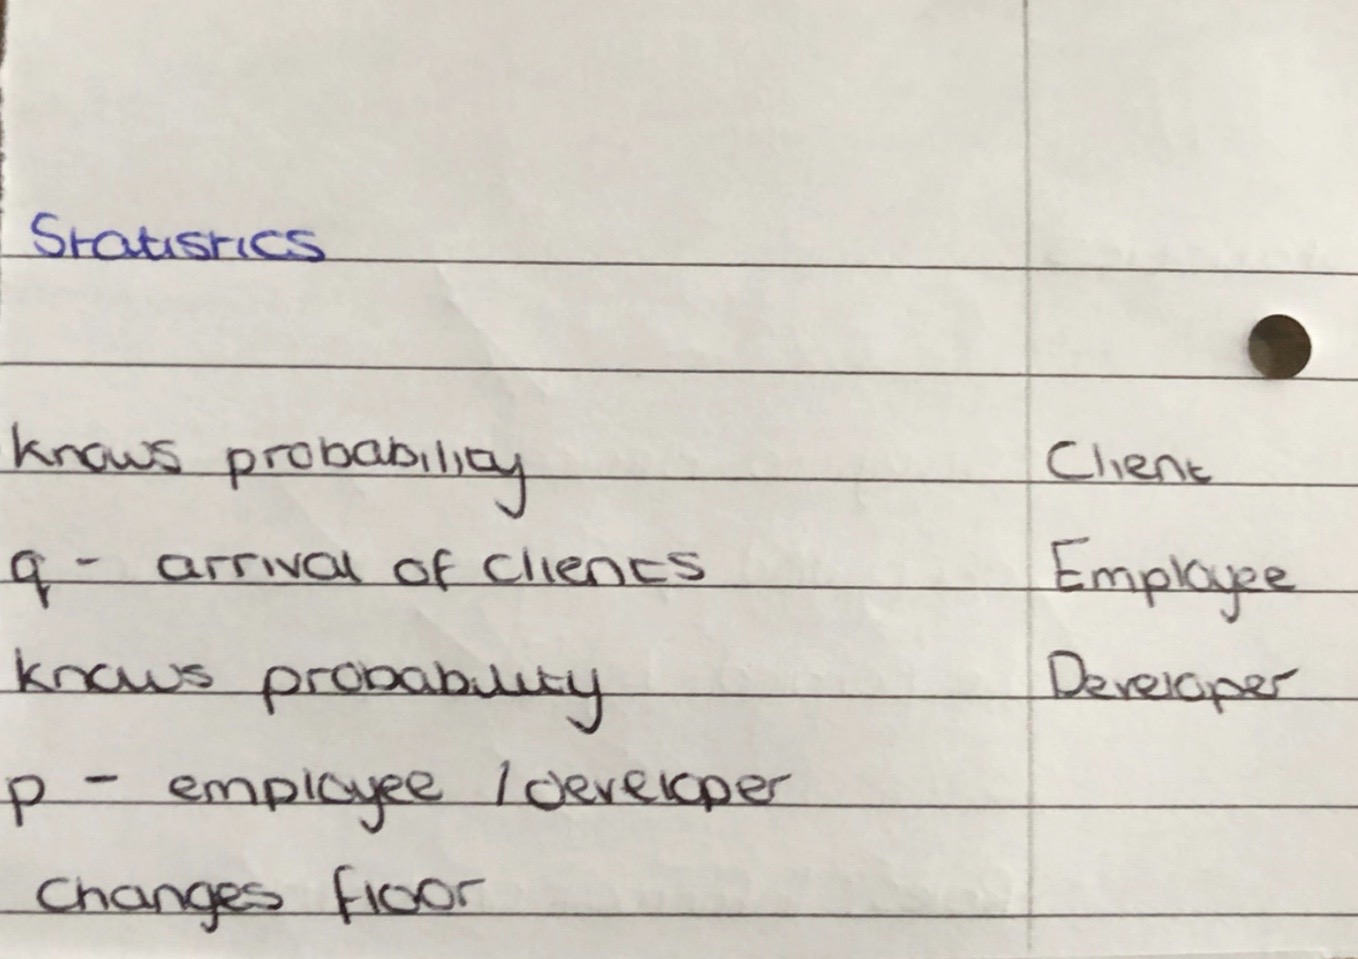 Statistics
knows probability
q - arrival of clients
knows probability
p - employee / developer
changes floor
Client
Employee
Developer